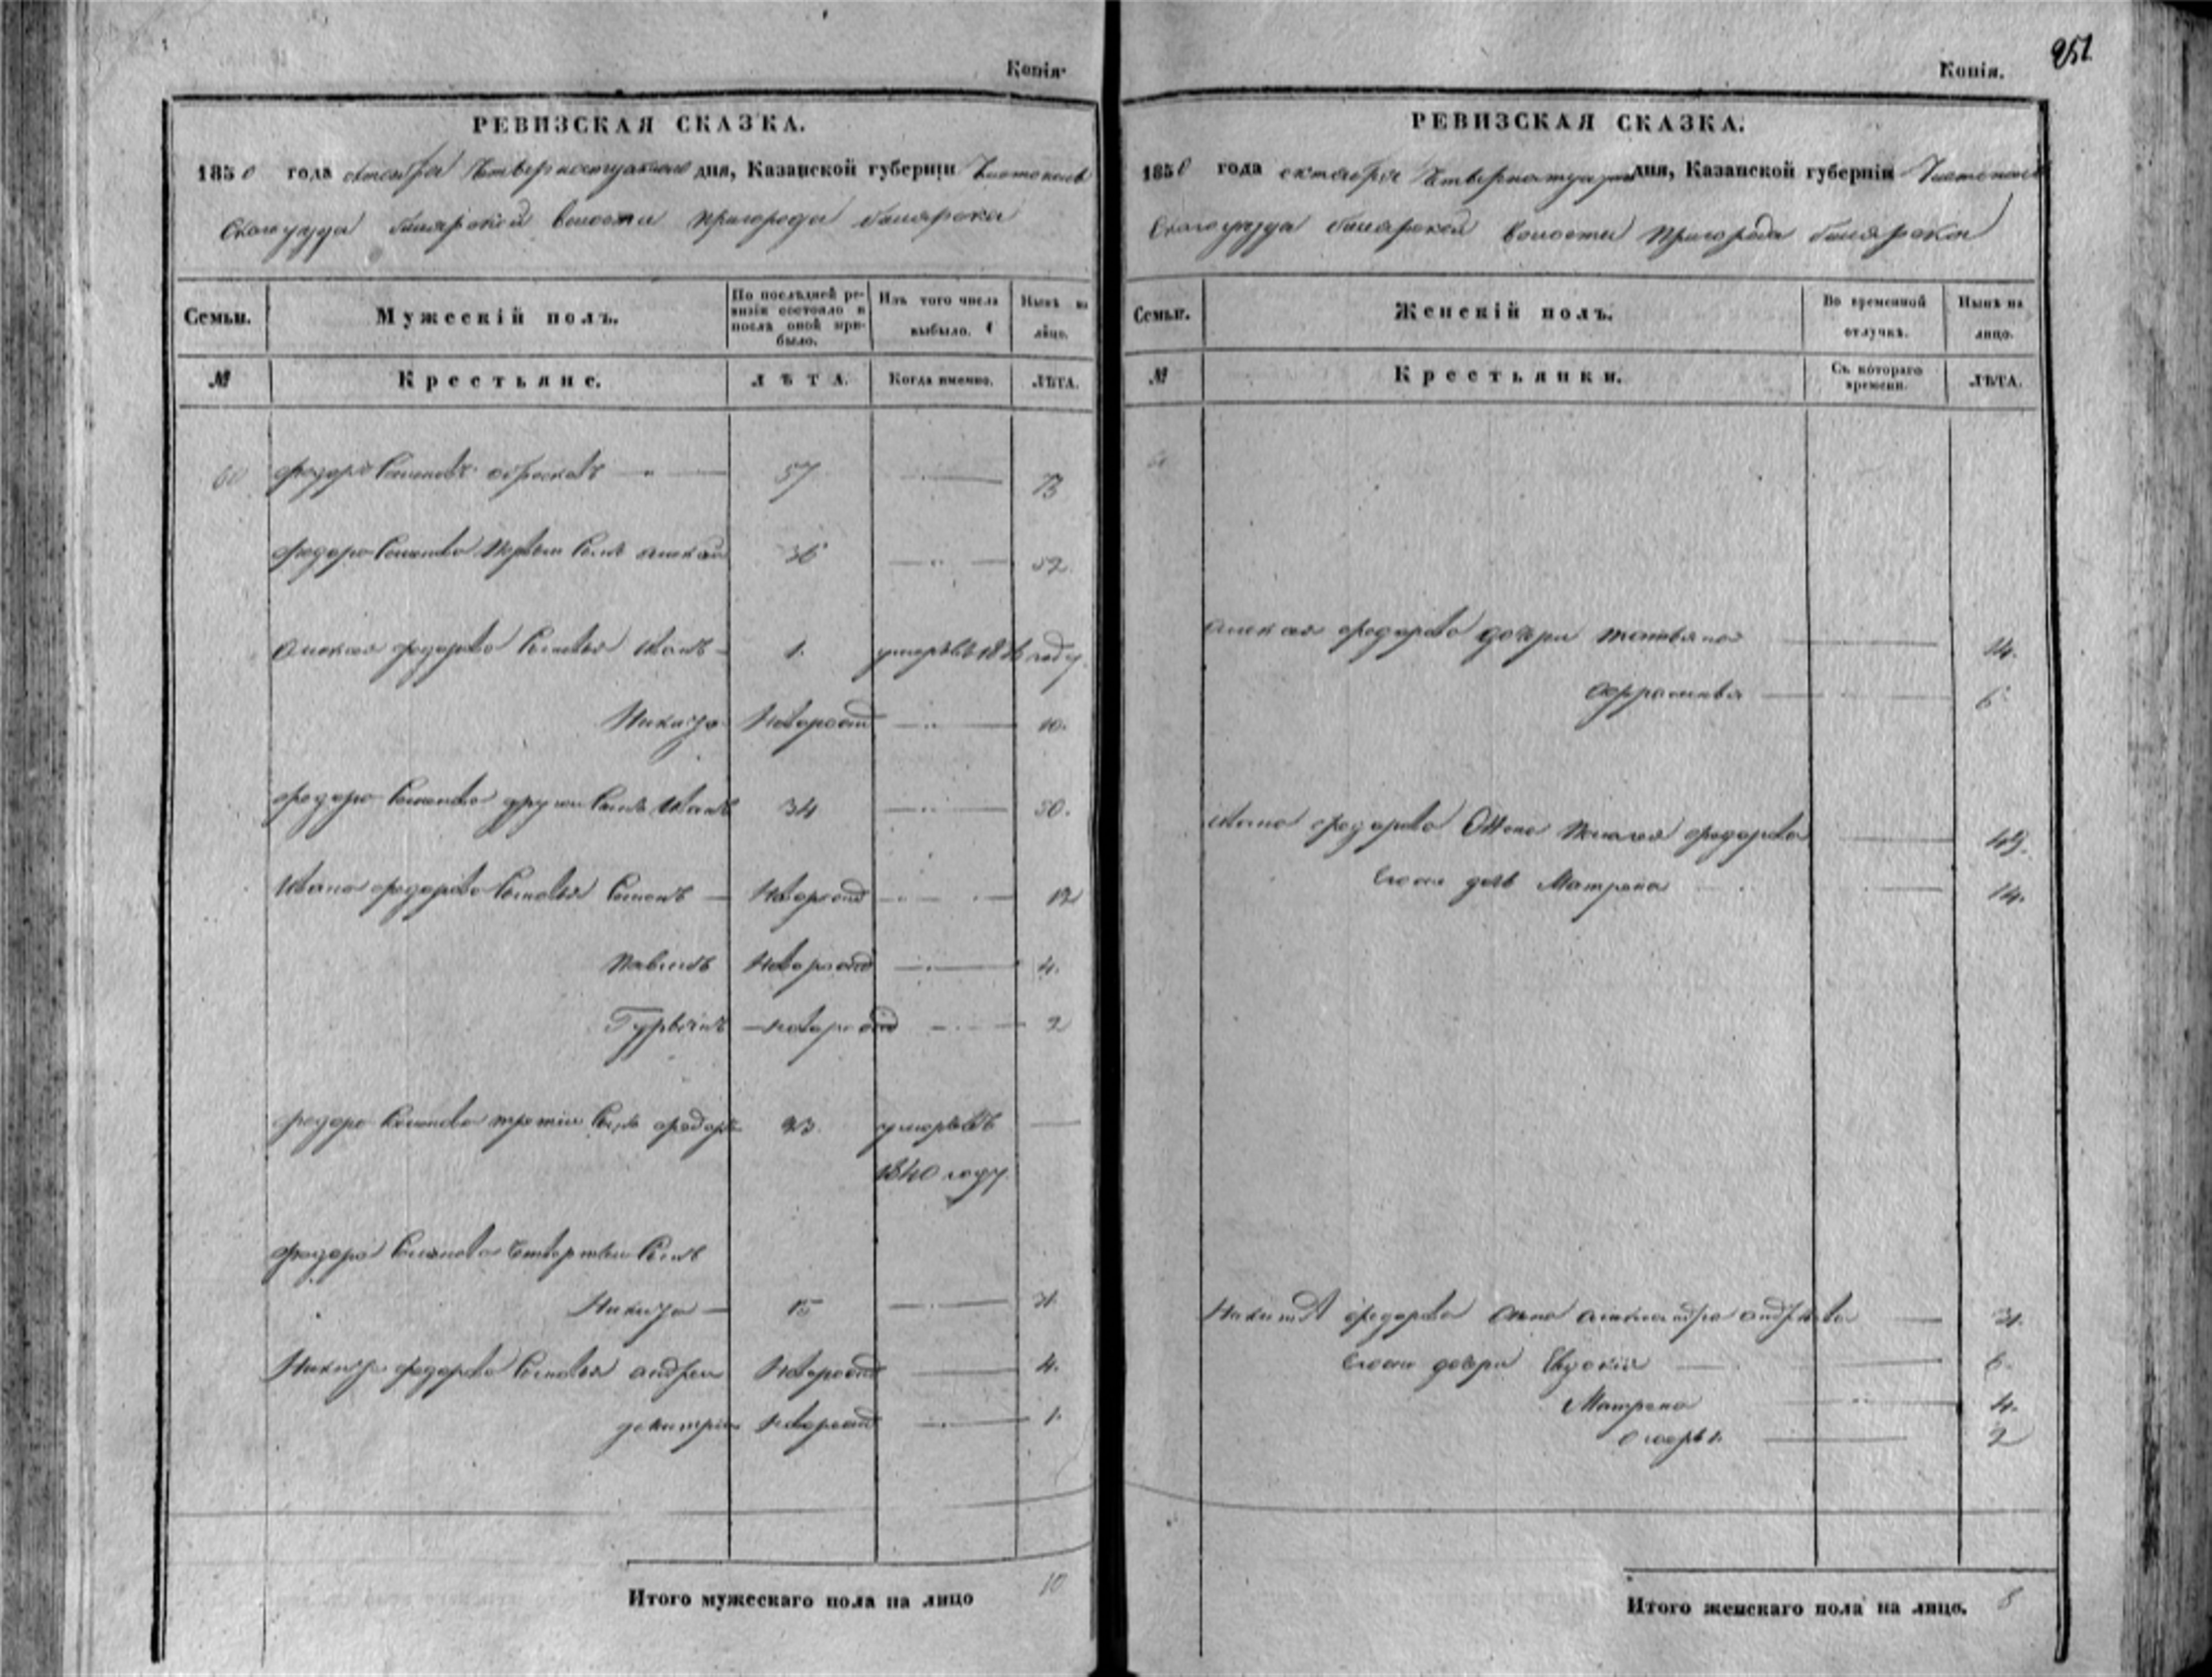 Копія.
РЕВИЗСКАЯ СКАЗКА.
1850 года октября дня, Казанской губерніи
волости пригорода билярска
Семьи.
Мужескій полъ.
По послѣдней ревизіи состояло и послѣ оной прибыло.
Изъ того числа выбыло.
Нынѣ на лицо.
№
Крестьяне.
ЛѢТА.
Когда именно.
ЛѢТА.
60 федоръ Семеновъ 57 73
федора Семенова первый Сынъ алексѣй 36 52
алексея федорова Сыновья Иванъ 1. умеръ въ 1836 году.
Никита Новорожд 10.
федора Семенова другой Сынъ Иванъ 34 50.
Ивана федорова Сыновья Семенъ Новорожд 12
Павелъ Новорожд 4.
Новорожд 2
федора Семенова третий Сынъ федоръ 23. умеръ въ
1840 году
федора Семенова Четвертый Сынъ
Никита 15 31.
Никиты федорова Сыновья андрей Новорожд 4.
Новорожд 1.
Итого мужескаго пола на лицо 10
251.
Копія.
РЕВИЗСКАЯ СКАЗКА.
1850 года октября дня, Казанской губерніи
скаго уезда билярской волости пригорода билярска
Семьи.
Женскій полъ.
Во временной отлучкѣ.
Нынѣ на лицо.
№
Крестьянки.
Съ котораго времени.
ЛѢТА.
алексея федорова дочери татьяна 14.
6.
Ивана федорова Жена федорова 49.
его дочь Матрена 14.
Никиты федорова Жена александра андреева 31.
его дочери Евдокия 6.
Матрена 4.
2
Итого женскаго пола на лицо. 8